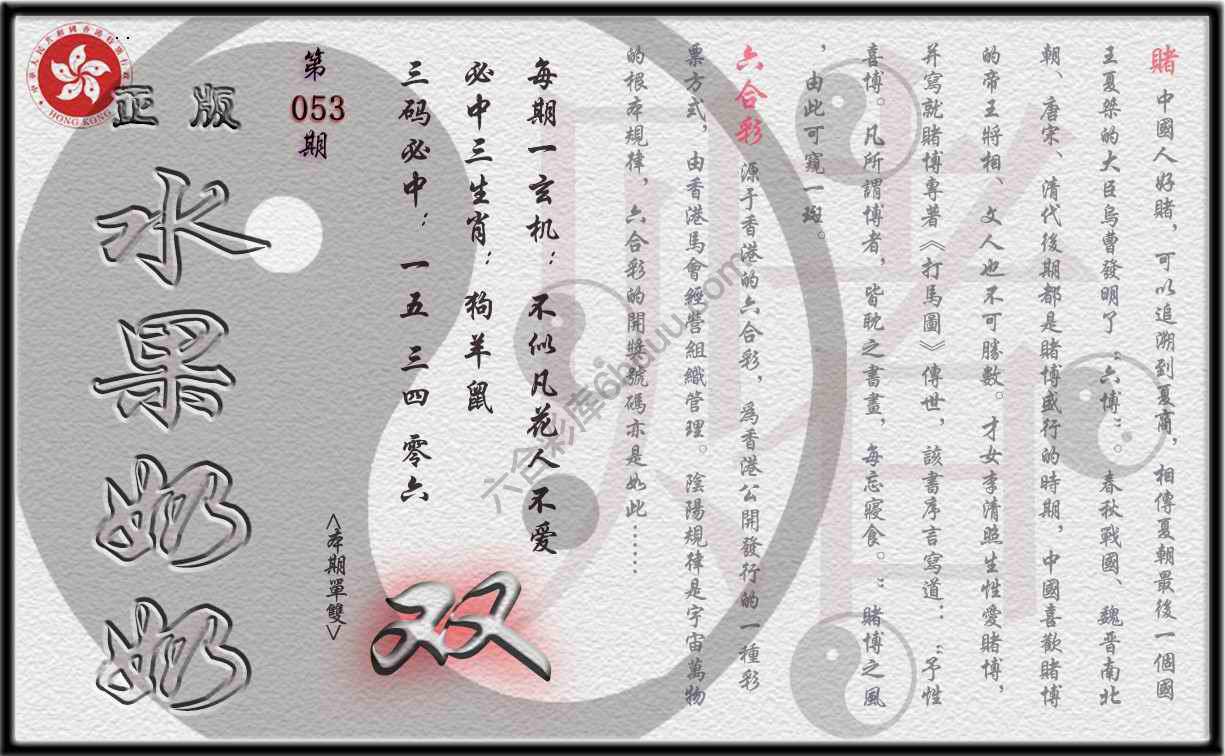 賭 中國人好賭，可以追溯到夏商，相傳夏朝最後一個國
王夏桀的大臣烏曹發明了“六博”。春秋戰國、魏晋南北
朝、唐宋、清代後期都是賭博盛行的時期，中國喜歡賭博
的帝王將相、文人也不可勝數。才女李清照生性愛賭博，
并寫就賭博專著《打馬圖》傳世，該書序言寫道：：“予性
喜博。凡所謂博者，皆耽之書畫，每忘寢食。”賭博之風
，由此可窺一斑。
六合彩 源于香港的六合彩，爲香港公開發行的一種彩
票方式，由香港馬會經營組織管理。陰陽規律是宇宙萬物
的根本規律，六合彩的開獎號碼亦是如此……
每期一玄机：不似凡花人不爱
必中三生肖：狗羊鼠
三码必中：一五 三四 零六
<本期單雙>
双
第
053
期
正版
水果奶奶
中華人民共和國香港特別行政區
HONG KONG
六合彩库6hduu.com
賭